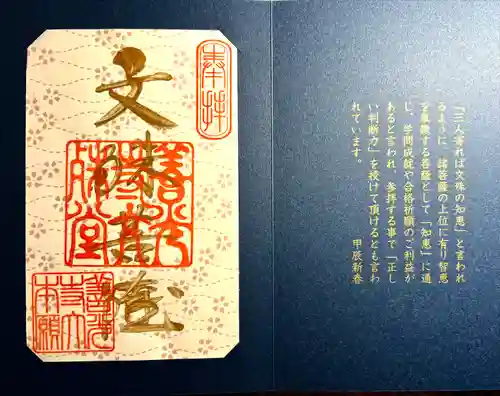 「三人寄れば文殊の知恵」と言われ
るように、諸菩薩の上位に有り智恵
を象徴する菩薩として「知恵」に通
じ、学問成就や合格祈願のご利益が
あると言われ、参拝する事で「正し
い判断力」を授けて頂けるとも言わ
れています。
甲辰新春
奉拝
文殊菩薩
善光寺大本願